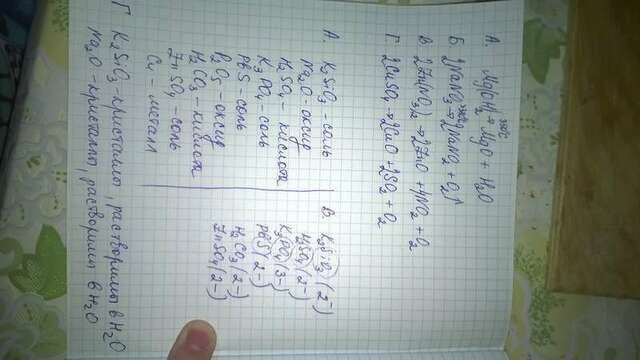 А. Mg(OH)₂ → MgO + H₂O
Б 2NaNO₃ → 2NaNO₂ + O₂↑
В 2Zn(NO₃)₂ → 2ZnO + 4NO₂ + O₂
Г 2CuSO₄ → 2CuO + 2SO₂ + O₂
А. K₂SiO₃ - соль
Na₂O - оксид
H₂SO₄ - кислота
K₃PO₄ - соль
PbS - соль
P₂O₅ - оксид
H₂CO₃ - кислота
ZnSO₄ - соль
Cu - металл
В. K₂SiO₃ (2-)
H₂SO₄ (2-)
K₃PO₄ (3-)
PbS (2-)
H₂CO₃ (2-)
ZnSO₄ (2-)
Г K₂SiO₃ - кристаллы, растворимы в H₂O
Na₂O - кристаллы, растворимы в H₂O